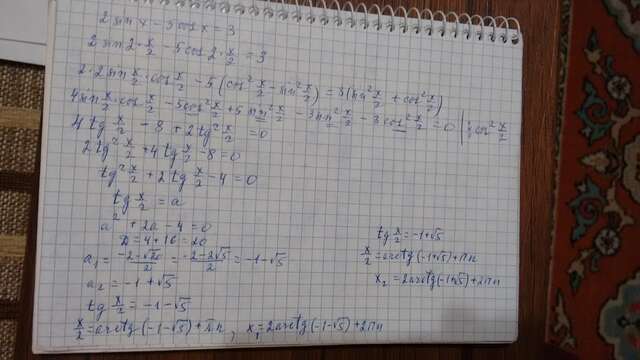 2 sin x - 5 cos x = 3
2 sin 2·x/2 - 5 cos 2·x/2 = 3
2·2 sin x/2 · cos x/2 - 5(cos² x/2 - sin² x/2) = 3(sin² x/2 + cos² x/2)
4 sin x/2 · cos x/2 - 5cos² x/2 + 5 sin² x/2 - 3 sin² x/2 - 3 cos² x/2 = 0 | : cos² x/2
4 tg x/2 - 8 + 2 tg² x/2 = 0
2 tg² x/2 + 4 tg x/2 - 8 = 0
tg² x/2 + 2 tg x/2 - 4 = 0
tg x/2 = a
a² + 2a - 4 = 0
D = 4 + 16 = 20
a₁ = (-2-√20)/2 = (-2-2√5)/2 = -1-√5
a₂ = -1 + √5
tg x/2 = -1-√5
x/2 = arctg(-1-√5) + πn, x₁ = 2arctg(-1-√5) + 2πn
tg x/2 = -1+√5
x/2 = arctg(-1+√5) + πn
x₂ = 2arctg(-1+√5) + 2πn